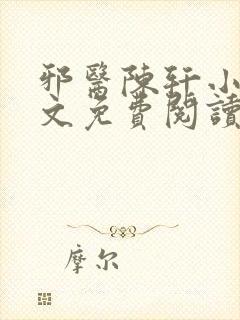 邪醫陳軒小
文免費閱讀
摩尔